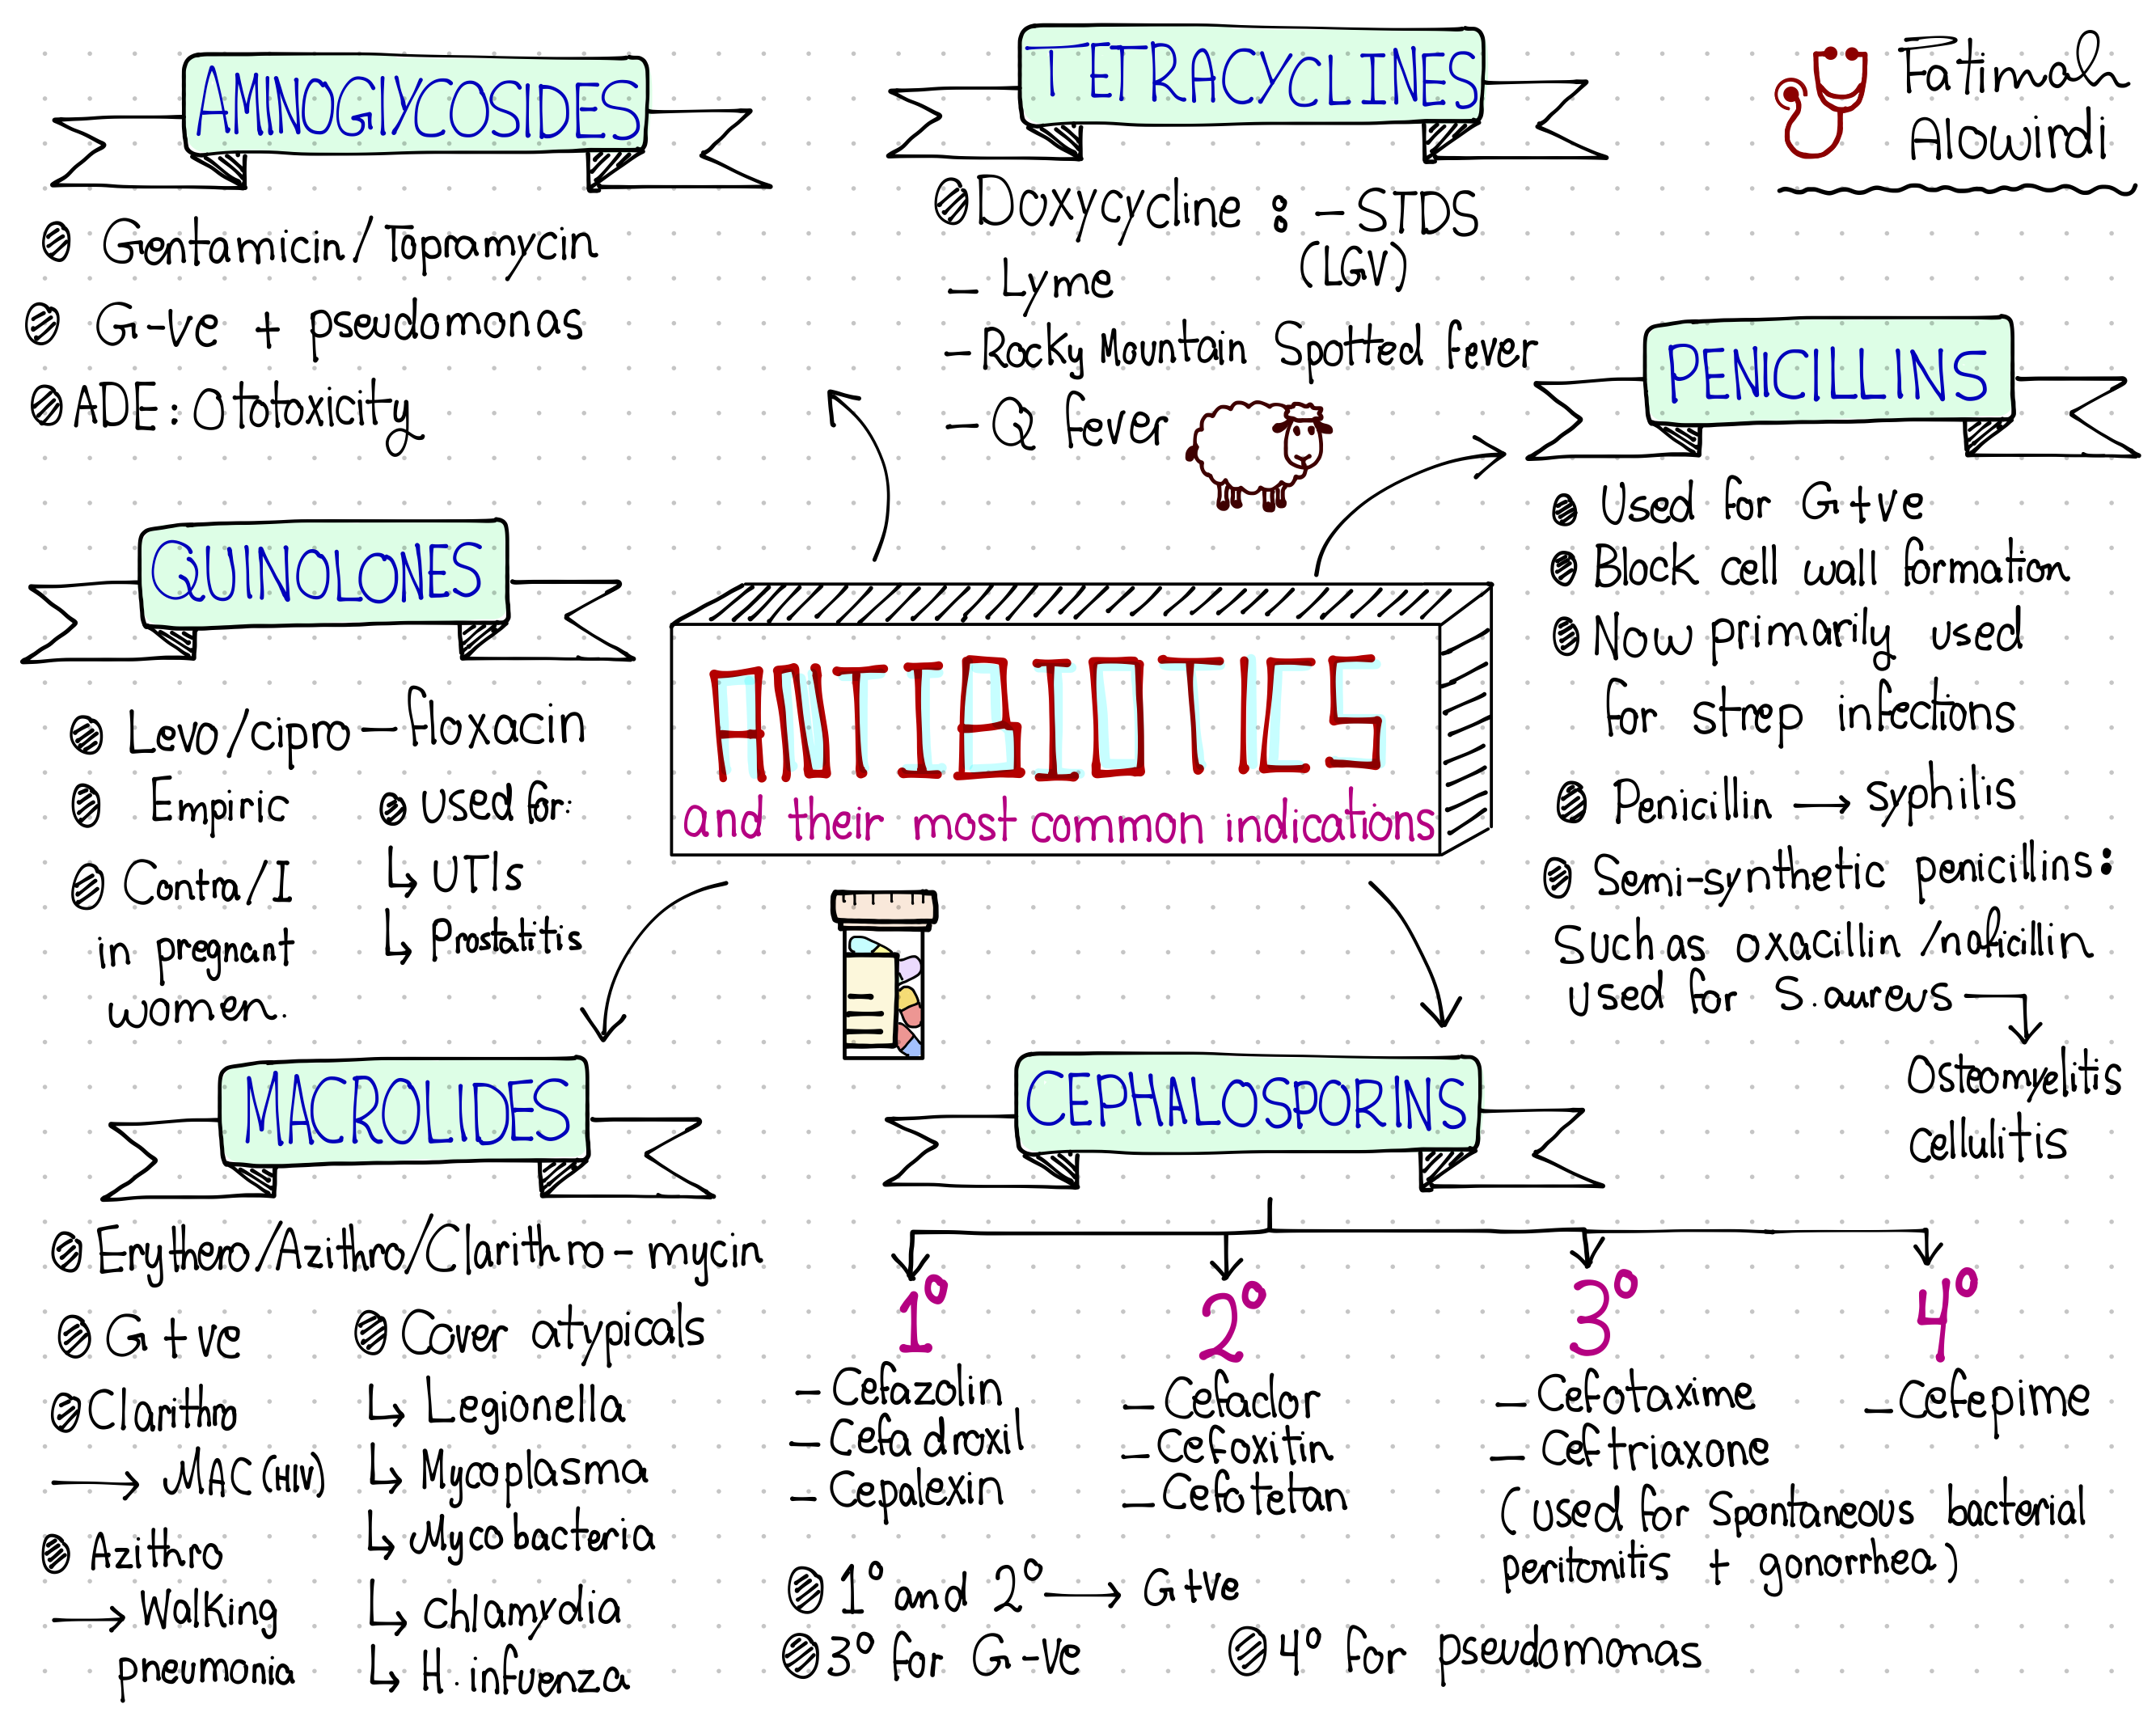 AMINOGLYCOSIDES
Gentamicin/Topramycin
G-ve + pseudomonas
ADE: Ototoxicity
TETRACYCLINES
Doxycycline : - STDS
(LGV)
- Lyme
- Rocky Mountain Spotted fever
- Q fever
Fatimah
Alowirdi
PENICILLINS
Used for G+ve
Block cell wall formation
Now primarily used
for strep infections
Penicillin → syphilis
Semi-synthetic penicillins:
Such as oxacillin /naficillin
used for S.aureus
Osteomyelitis
cellulitis
QUINOLONES
Levo/cipro - floxacin
Empiric
Contra/I
in pregnant
women.
used for:
↳ UTIs
↳ Prostatitis
ANTIBIOTICS
and their most common indications
MACROLIDES
Erythero/Azithro/Clarithro - mycin
G+ve
Clarithro
→ MAC (HIV)
Azithro
→ Walking
pneumonia
Cover atypicals
↳ Legionella
↳ Mycoplasma
↳ Mycobacteria
↳ chlamydia
↳ H.infuenza
CEPHALOSPORINS
1°
- Cefazolin
- Cefadroxil
- Cepalexin
2°
- Cefaclor
- Cefoxitin
- Cefotetan
3°
- Cefotaxime
- Ceftriaxone
(used for Spontaneous bacterial
peritonitis + gonorrhea)
4°
- Cefepime
1° and 2° → G+ve
3° for G-ve
4° for pseudomonas